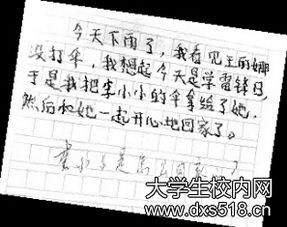 今天下雨了，我看见王丽娜
没打伞，我想起今天是学雷锋日，
于是我把李小小的伞拿给了她，
然后和她一起开心地回家了。
李小小是怎么回家
大学生校内网
www.dxs518.cn